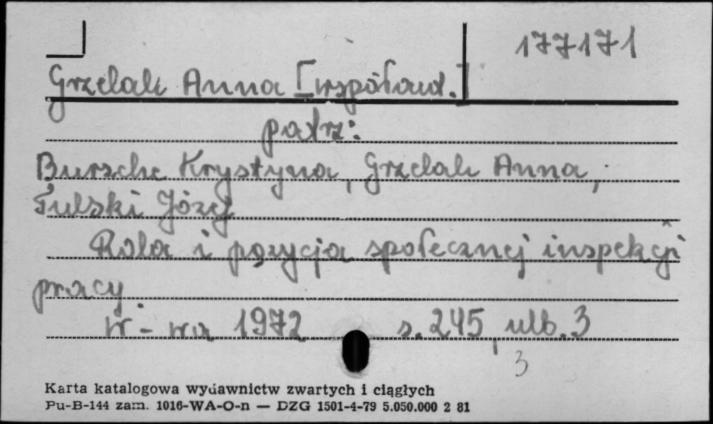 177171
Grzelak Anna [współaut.]
patrz:
Bursche Krystyna, Grzelak Anna,
Tulski Józef
Rola i pozycja społecznej inspekcji
pracy.
W-wa 1972 s. 245, ulb. 3
3
Karta katalogowa wydawnictw zwartych i ciągłych
Pu-B-144 zam. 1016-WA-O-n — DZG 1501-4-79 5.050.000 2 81